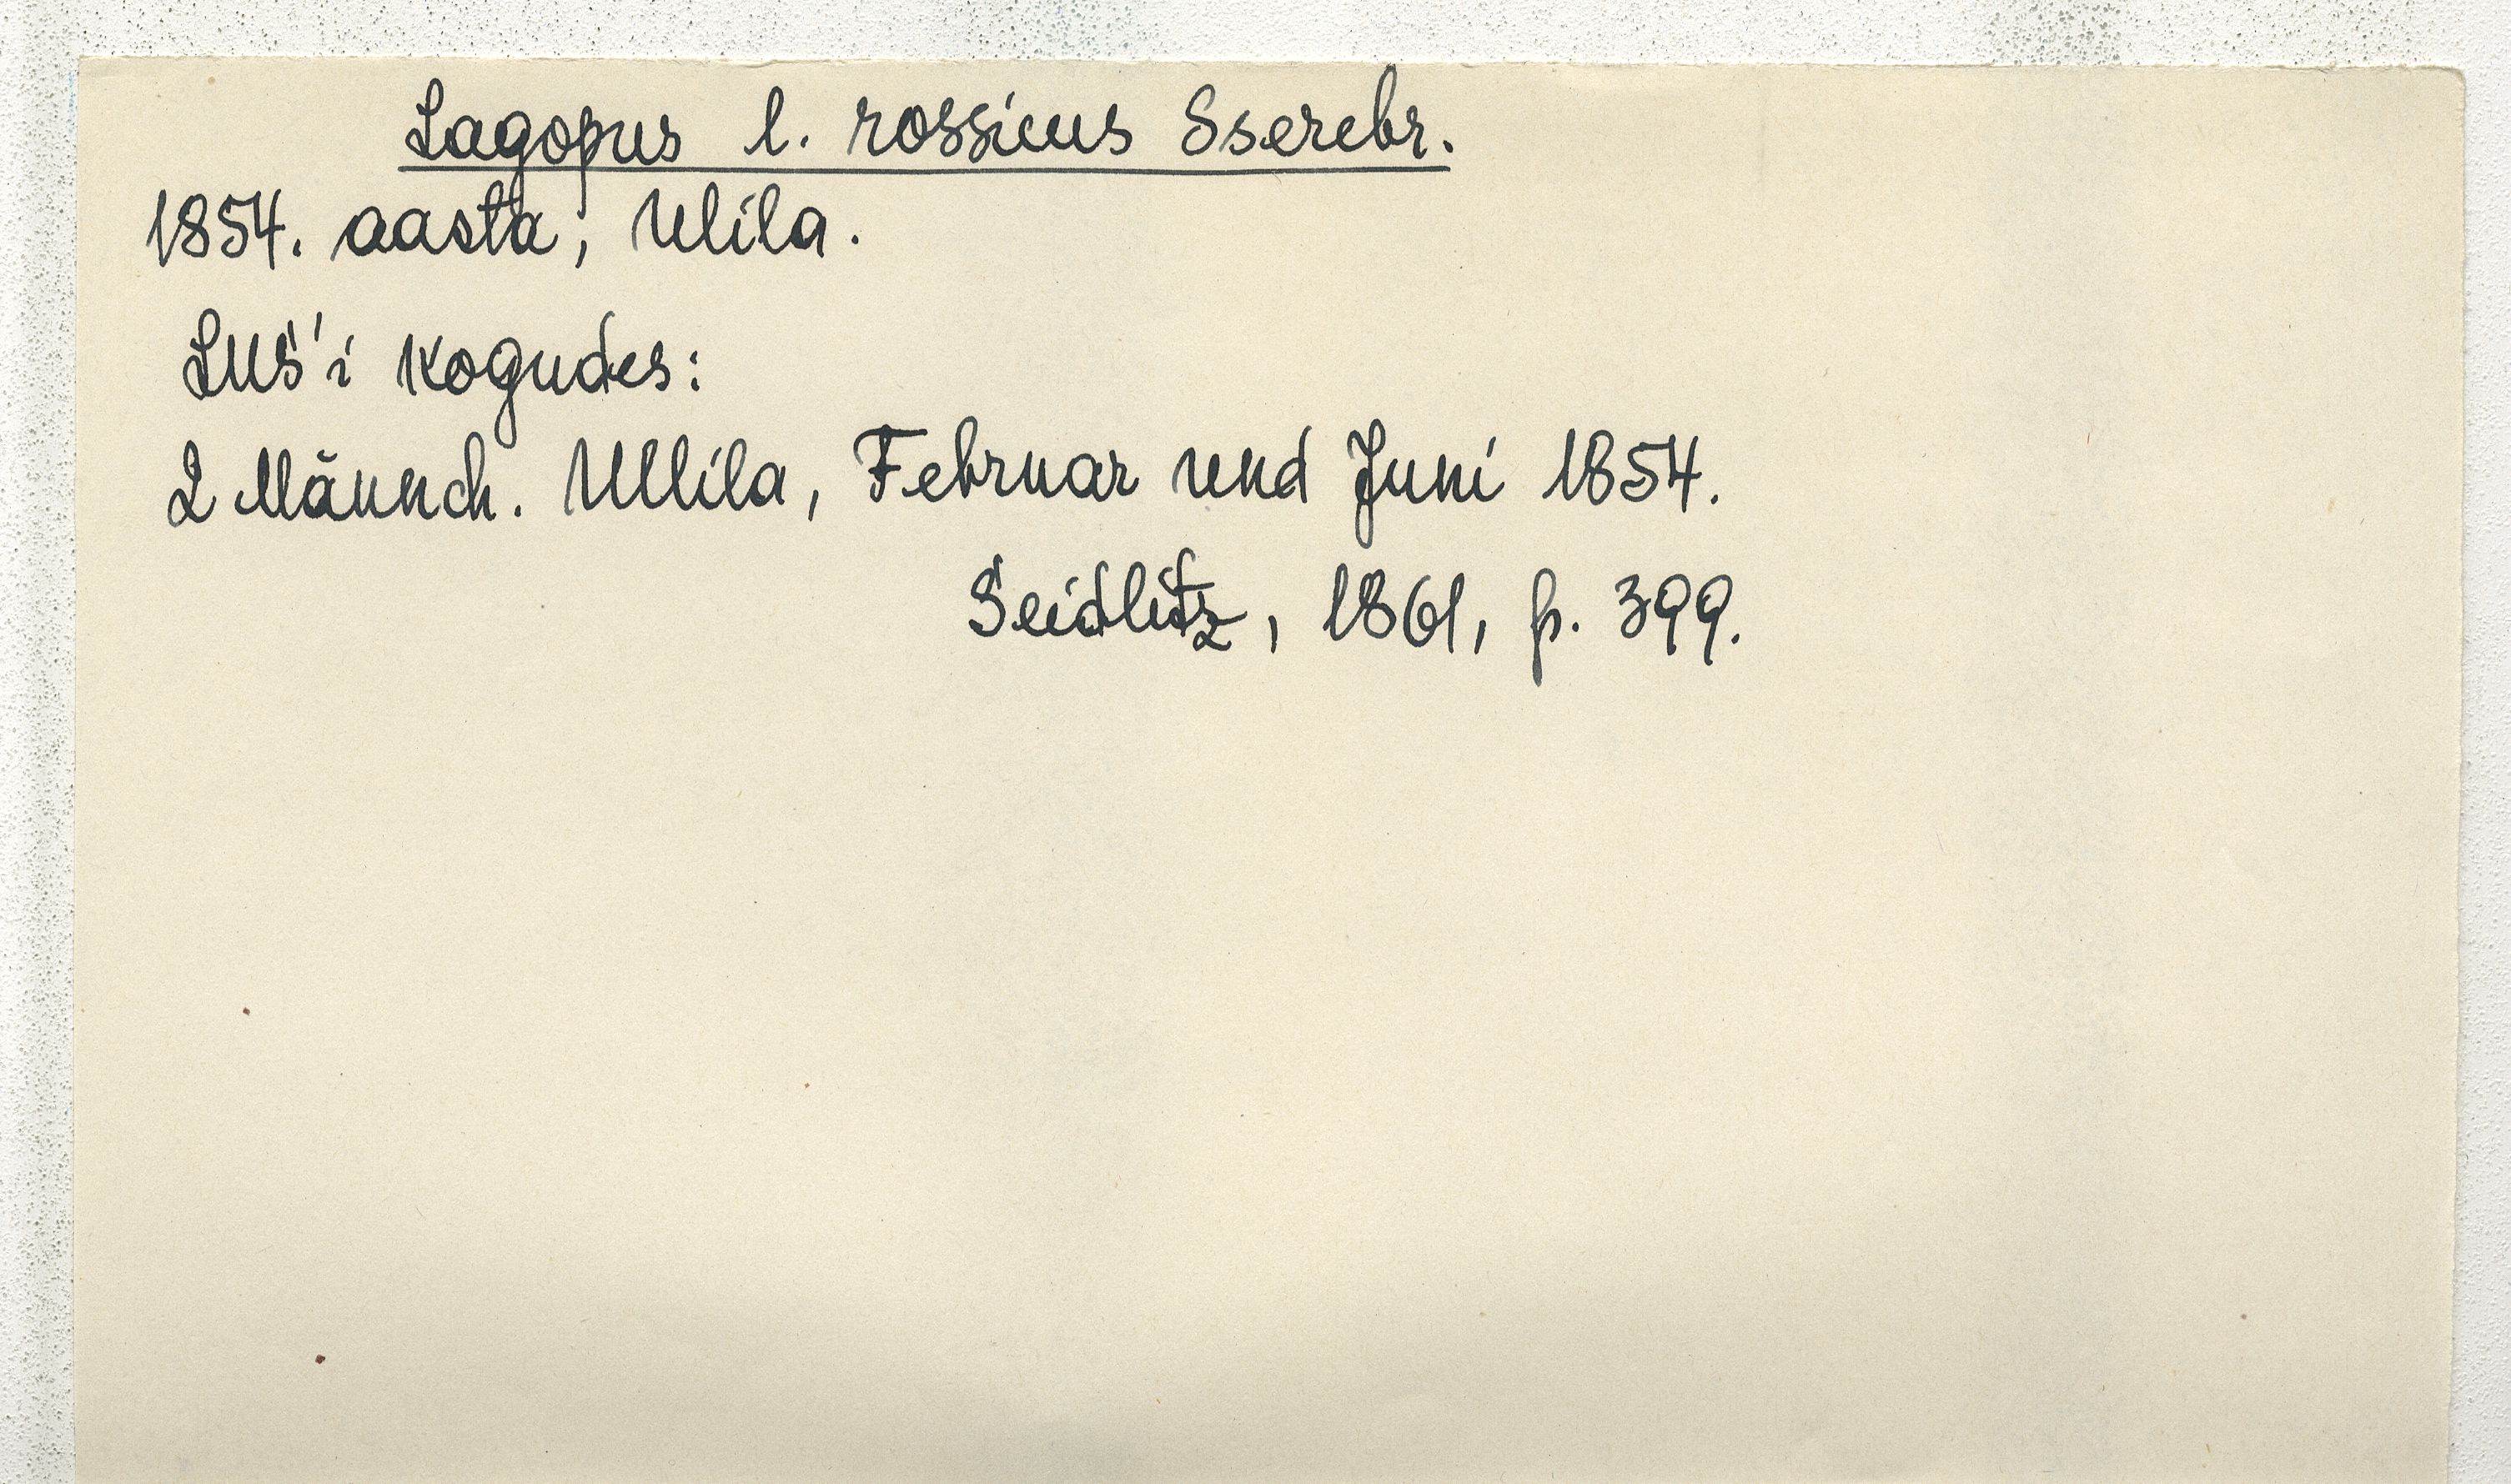 Lagopus l. rossicus Sserebr.
1854. aasta, Ulila.
LUS'i kogudes:
2 Männch. Ullila, Februar und Juni 1854.
Seidlitz, 1861, p. 399.